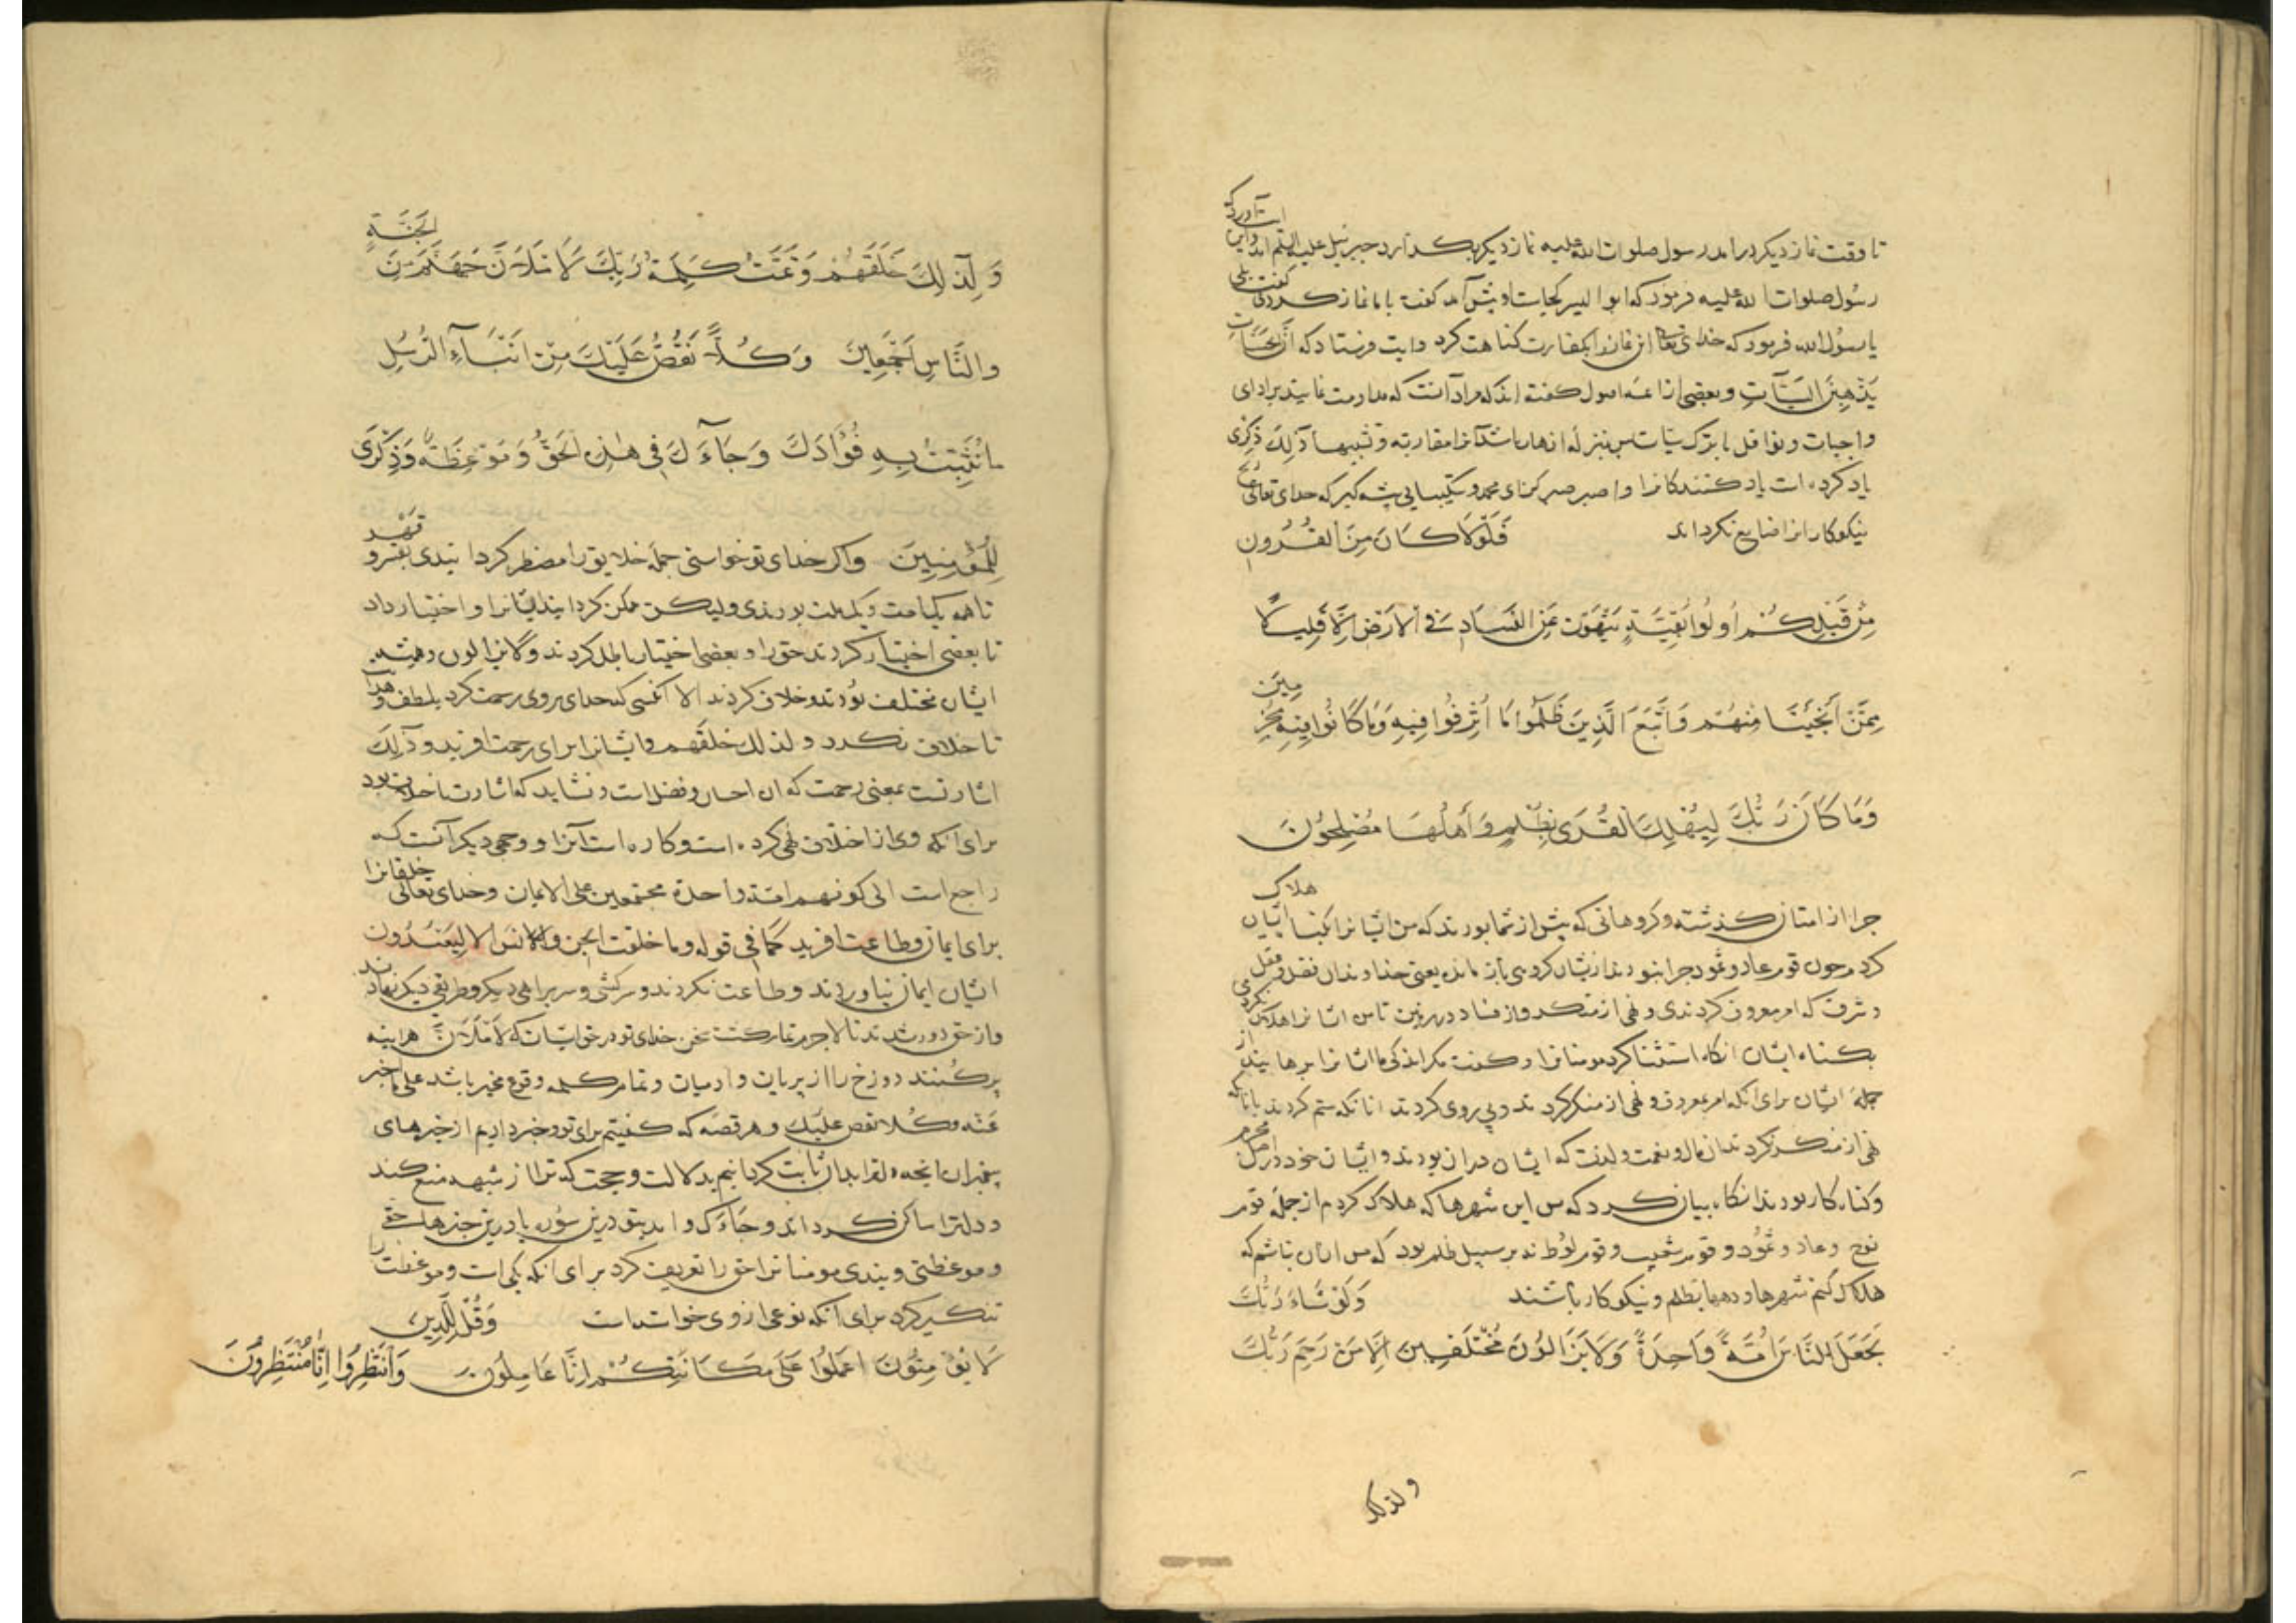 تا وقت نماز دیکر درامد رسول صلوات الله علیه نماز دیکر بکذارد جبرئیل علیه السلم امد و این ایت آورد که
رسول صلوات الله علیه فرمود که ابوالیسر کجاست او پیش آمد کفت با ما نماز کردی کفت بلی
یا رسول الله فرمود که خدای تعالی این نماز را بکفارت کناهت کرد و ایت فرستاد که ان الحسنات
یذهبن السیآت و بعضی از ائمه اصول کفته اند که مراد آنست که مداومت نمایند بر ادای
واجبات و نوافل با ترک سیات بمنزله اذهاب باشد آنرا مقاربة و تشبیها ذٰلِكَ ذِكْرٰی
یاد کرده است یاد کنندکانرا واصبر صبر کن ای محمد و شکیبایی پیشه کیر که خدای تعالی
نیکوکارانرا ضایع نکرداند فَلَوْلَا كَانَ مِنَ الْقُرُونِ
مِنْ قَبْلِكُمْ اُولُوا بَقِيَّةٍ يَنْهَوْنَ عَنِ الْفَسَادِ فِي الْاَرْضِ اِلَّا قَلِيلًا
مِمَّنْ اَنْجَيْنَا مِنْهُمْ وَاتَّبَعَ الَّذِينَ ظَلَمُوا مَا اُتْرِفُوا فِيهِ وَكَانُوا مُجْرِمِينَ
وَمَا كَانَ رَبُّكَ لِيُهْلِكَ الْقُرَى بِظُلْمٍ وَاَهْلُهَا مُصْلِحُونَ
چرا از امتان کذشته و کروهانی که پیش از شما بودند که من ایشانرا بکناه ایشان هلاک
کردم چون قوم عاد و ثمود چرا نبودند ازیشان کروهی باز مانده یعنی خداوندان فضل و عقل
و شرف که امر معروف کردندی و نهی از منکر و از فساد در زمین تا من ایشانرا هلاک نکردمی
بکناه ایشان انکاه استثنا کرد مومنانرا و کفت مکر اندکی ما ایشانرا برهانیدیم از
جمله ایشان برای انکه امر معروف و نهی از منکر کردند و پی روی کردند انانکه ستم کردند بانکه
نهی از منکر نکردند ان مال و نعمت و لذت که ایشان دران بودند و ایشان خود در اصل مجرم
و کناه کار بودند انکاه بیان کرد که من این شهرها که هلاک کردم از جمله قوم
نوح و عاد و ثمود و قوم شعیب و قوم لوط نه بر سبیل ظلم بود که من انان باشم که
هلاک کنم شهرها و دهها بظلم و نیکوکار باشند وَلَوْ شَاءَ رَبُّكَ
لَجَعَلَ النَّاسَ اُمَّةً وَاحِدَةً وَلَا يَزَالُونَ مُخْتَلِفِينَ اِلَّا مَنْ رَحِمَ رَبُّكَ
ولذلک
وَلِذٰلِكَ خَلَقَهُمْ وَتَمَّتْ كَلِمَةُ رَبِّكَ لَاَمْلَاَنَّ جَهَنَّمَ مِنَ الْجِنَّةِ
وَالنَّاسِ اَجْمَعِينَ وَكُلًّا نَقُصُّ عَلَيْكَ مِنْ اَنْبَآءِ الرُّسُلِ
مَا نُثَبِّتُ بِهِ فُؤَادَكَ وَجَآءَكَ فِي هٰذِهِ الْحَقُّ وَمَوْعِظَةٌ وَذِكْرَى
لِلْمُؤْمِنِينَ واکر خدای تو خواستی جمله خلایق را مضطر کردانیدی بقهر و
تا همه یک امت و یک ملت بودندی ولیکن ممکن کردانید ایشانرا و اختیار داد
تا بعضی اختیار کردند حق را و بعضی اختیار باطل کردند ولا یزالون و همیشه
ایشان مختلف بودند و خلاف کردند الا آنکسی که خدای بروی رحمت کرد بلطف و هدایت
تا خلاف نکرد ولذلک خلقهم و ایشانرا برای رحمت افرید و ذلک
اشارتست بمعنی رحمت که ان احسان و فضل است و نشاید که اشارت باختلاف بود
برای انکه وی از اختلاف نهی کرده است و کاره است آنرا و وجهی دیکر آنست که
راجع است الی کونهم امة واحدة مجتمعین علی الایمان و خدای تعالی خلقانرا
برای ایمان و طاعت افرید کما فی قوله وما خلقت الجن والانس الا لیعبدون
ایشان ایمان نیاوردند و طاعت نکردند و سر کشی و سر براهی دیکر و طریقی دیکر نهادند
و از حق دور شدند تا لاجرم تمام کشت سخن خدای تو در حق ایشان که لَاَمْلَاَنَّ هراینه
پر کنند دوزخ را از پریان و ادمیان و تمام کلمه وقوع مخبر باشد علی ما اخبر
عنه وکلا نقص علیک و هر قصه که کفتیم برای تو و خبر دادیم از خبرهای
پیغمبران انچه دلترا بدان ثابت کردانیم بدلالت و حجت که ترا از شبهه منع کند
و دلترا ساکن کرداند و جاءک و امد بتو درین سوره یا درین خبرها حق
و موعظتی و پندی مومنانرا حق را تعریف کرد برای انکه یکی است و موعظت را
تنکیر کرد برای انکه نوعی ازوی خواسته است وَقُلْ لِلَّذِينَ
لَا يُؤْمِنُونَ اعْمَلُوا عَلَى مَكَانَتِكُمْ اِنَّا عَامِلُونَ وَانْتَظِرُوا اِنَّا مُنْتَظِرُونَ